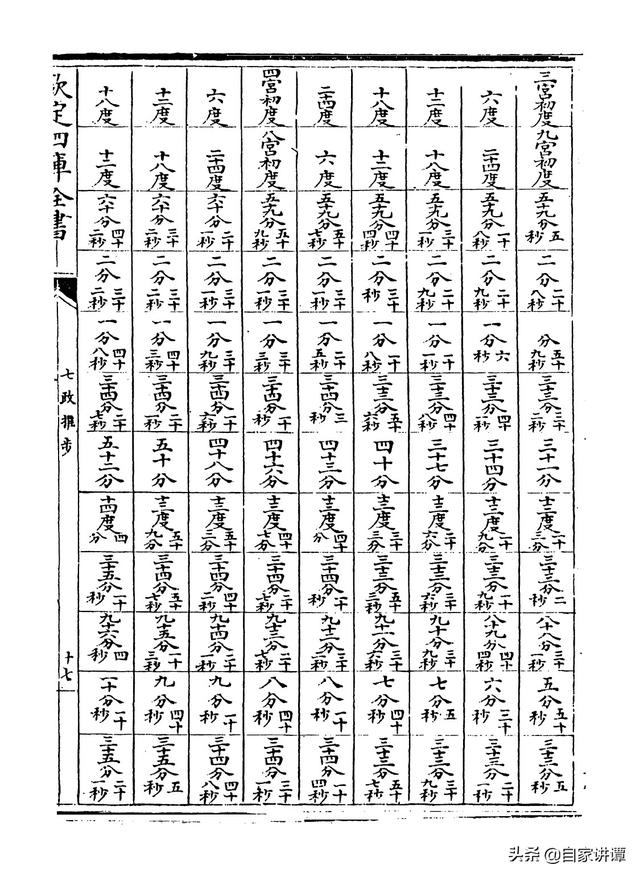 三宮初度 九宮初度 五十九分五秒 二分二十八秒 分五十九秒 三十三分三十二秒 三十一分 十三度二十三分 三十三分二秒 八十八分三十一秒 五分五十秒 三十三分五秒
六度 二十四度 五十九分一十八秒 二分二十九秒 一分六秒 三十三分四十一秒 三十四分 十三度二十九分 三十三分一十九秒 八十九分四十四秒 六分三十秒 三十三分二十一秒
十二度 十八度 五十九分三十一秒 二分二十九秒 一分一十一秒 三十三分四十八秒 三十七分 十三度二十六分 三十三分三十六秒 九十分三十九秒 七分五秒 三十三分三十九秒
十八度 十二度 五十九分四十四秒 二分三十秒 一分一十八秒 三十三分五十六秒 四十分 十三度三十三分 三十三分五十三秒 九十一分三十六秒 七分四十秒 三十三分五十七秒
二十四度 六度 五十九分五十七秒 二分三十一秒 一分二十五秒 三十四分三秒 四十三分 十三度四十分 三十四分一十秒 九十二分三十秒 八分一十秒 三十四分一十四秒
四宮初度 八宮初度 五十九分五十九秒 二分三十一秒 一分三十三秒 三十四分一十秒 四十六分 十三度四十七分 三十四分二十七秒 九十三分二十七秒 八分四十秒 三十四分三十一秒
六度 二十四度 六十分二十一秒 二分三十一秒 一分三十九秒 三十四分一十六秒 四十八分 十三度五十三分 三十四分四十二秒 九十四分二十一秒 九分一十秒 三十四分四十八秒
十二度 十八度 六十分三十二秒 二分三十二秒 一分四十三秒 三十四分二十一秒 五十分 十三度五十九分 三十四分五十七秒 九十五分一十三秒 九分四十秒 三十五分五秒
十八度 十二度 六十分四十二秒 二分三十二秒 一分四十八秒 三十四分二十七秒 五十二分 十四度四分 三十五分一十秒 九十六分四秒 一十分一十秒 三十五分二十一秒
欽定四庫全書
七政推步
十七
头条 @自家讲谭